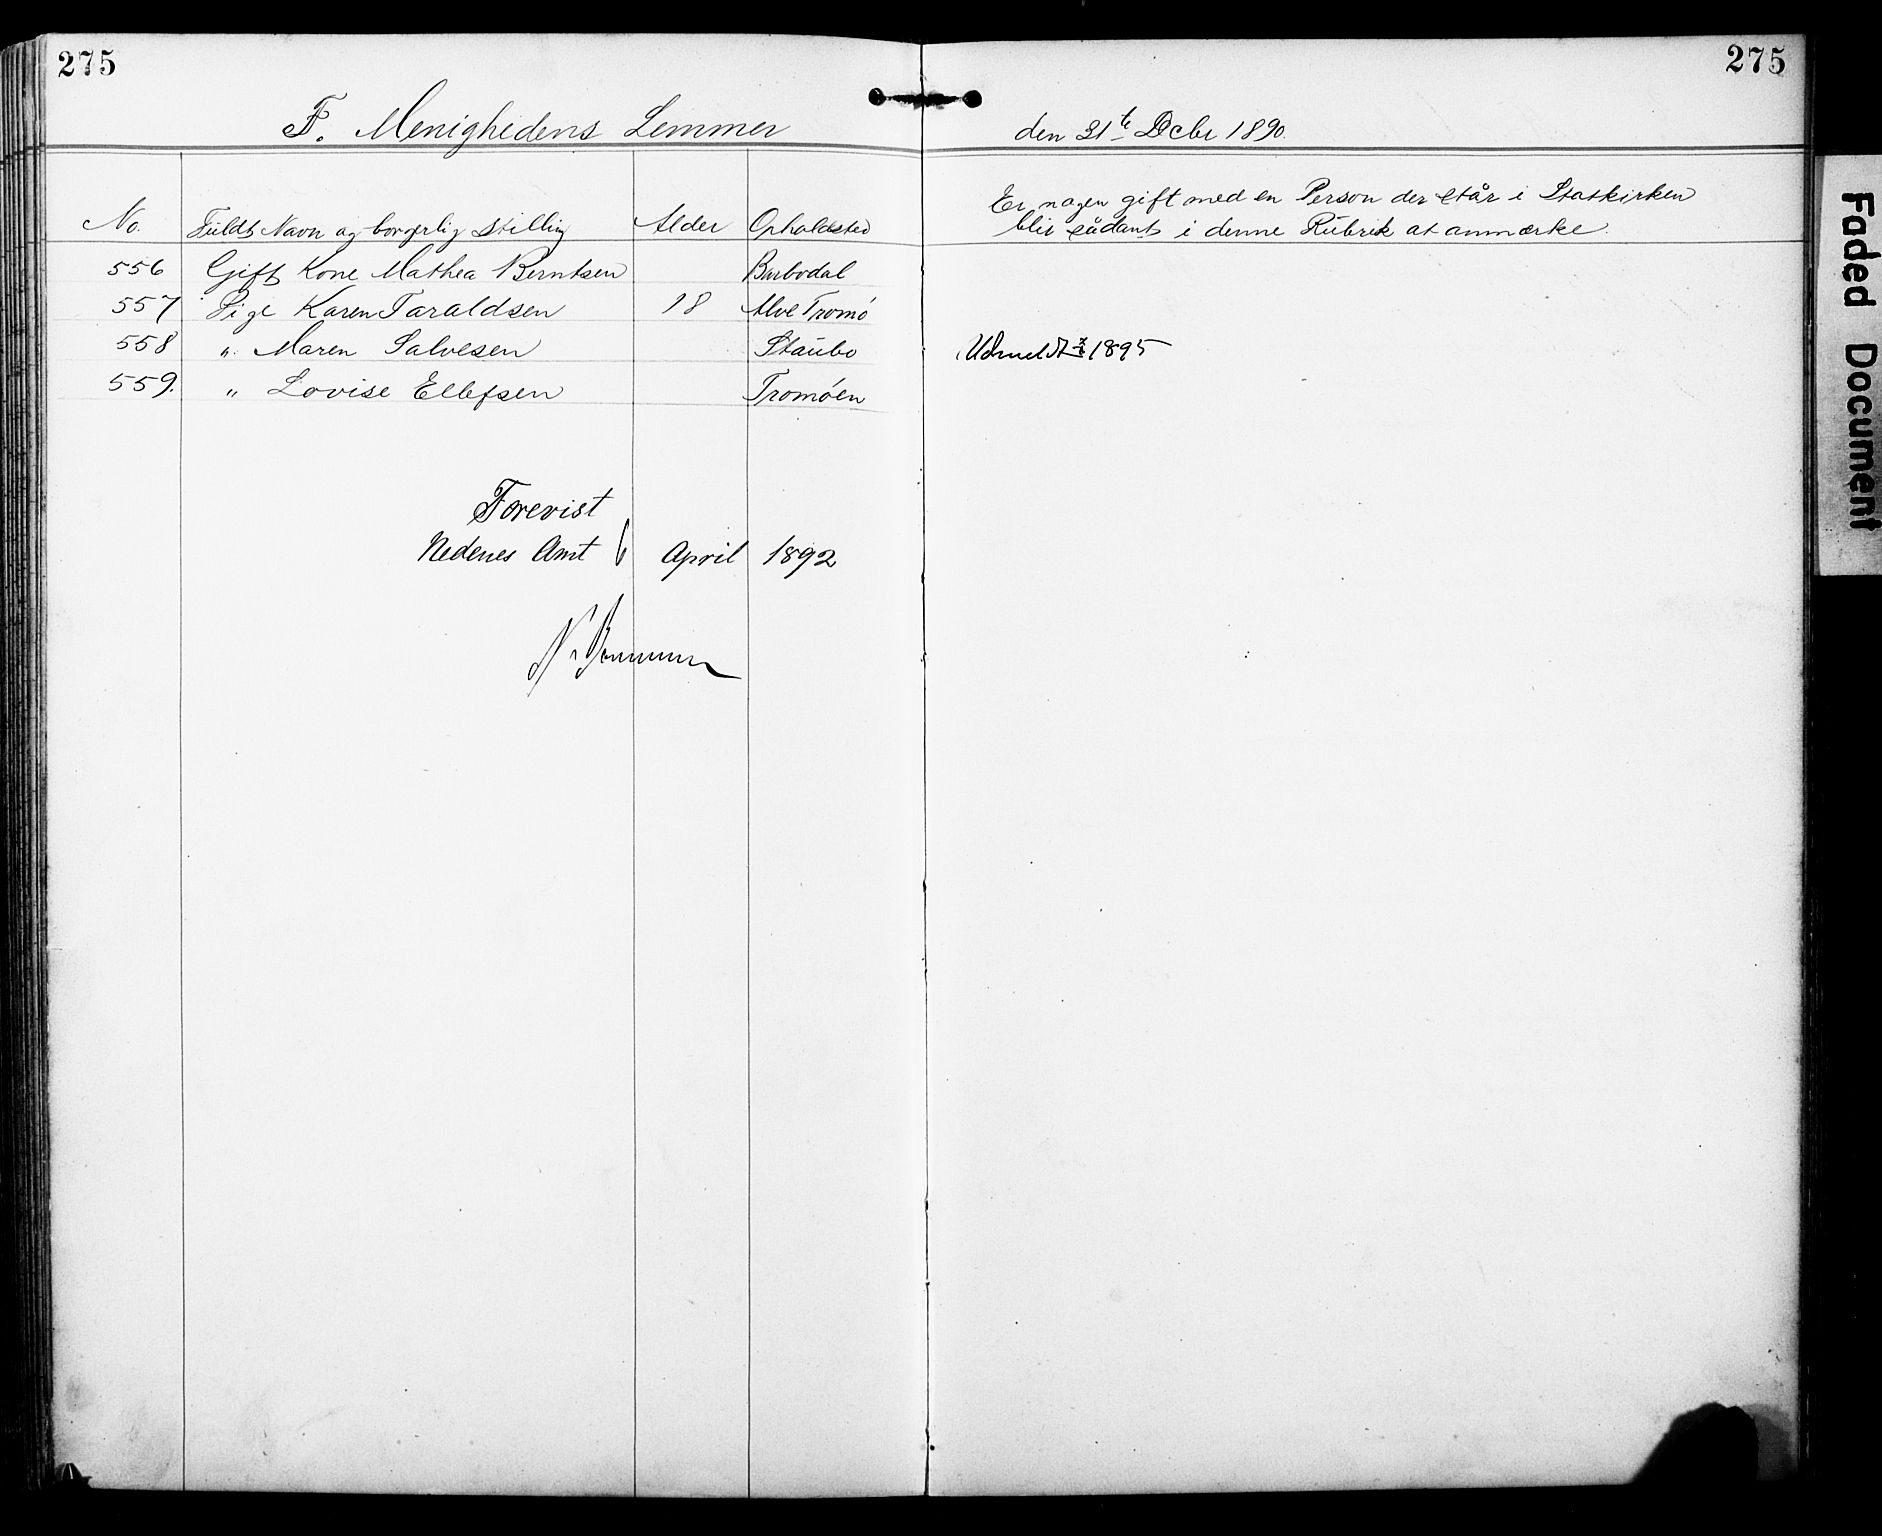 275 275
F. Menighedens Lemmer den 31te Decbr 1890.
Er nogen gift med en Person der står i Statskirken
bliv sådant i denne Rubrik at anmærke.
No. Fuldt Navn og borgerlig Stilling Alder Opholdssted
556 Gift Kone Mathea Berntsen Barbodal
557 Pige Karen Taraldsen 18 Alve Tromø
558 " Maren Salvesen Staubo Udmeldt 1895
559. " Lovise Ellefsen Tromøen
Forevist
Nedenes Amt 6 April 1892
Faded Document